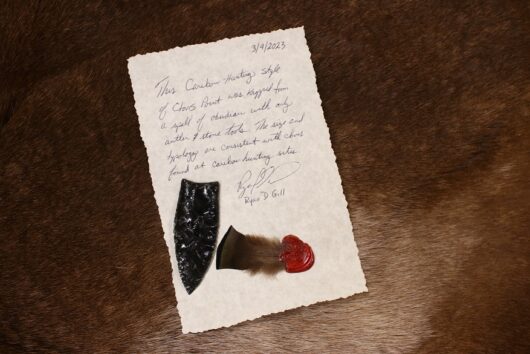 3/9/2023
This Caribou-Hunting style
of Clovis Point was knapped from
a spall of obsidian with only
antler & stone tools. The size and
typology are consistent with clovis
found at caribou hunting sites.
Ryan D. Gill